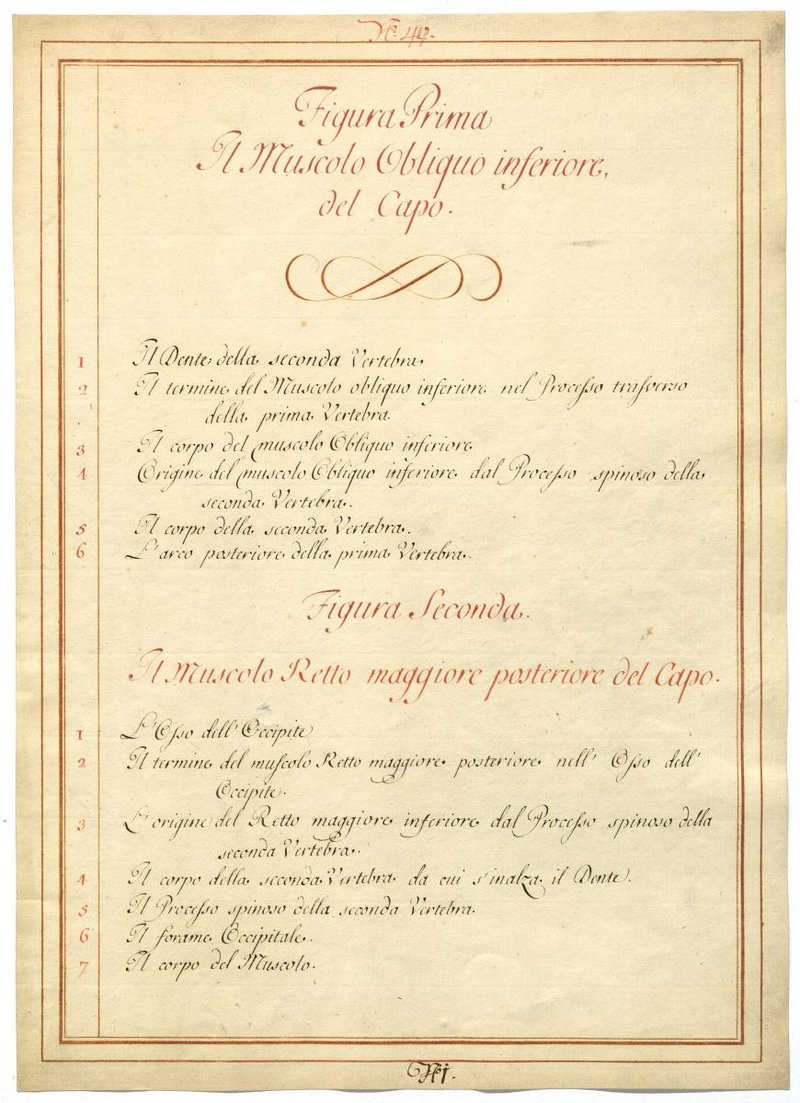 Figura Prima
Il Muscolo Obliquo inferiore,
del Capo.
1 Il Dente della seconda Vertebra
2 Il termine del Muscolo obliquo inferiore nel Processo trasverso
della prima Vertebra
3 Il corpo del muscolo Obliquo inferiore
4 Origine del muscolo Obliquo inferiore dal Processo spinoso della
seconda Vertebra.
5 Il corpo della seconda Vertebra.
6 L'arco posteriore della prima Vertebra.
Figura Seconda.
Il Muscolo Retto maggiore posteriore del Capo.
1 L'Osso dell'Occipite
2 Il termine del muscolo Retto maggiore posteriore nell' Osso dell'
Occipite.
3 L'origine del Retto maggiore inferiore dal Processo spinoso della
seconda Vertebra.
4 Il corpo della seconda Vertebra da cui s'inalza il Dente.
5 Il Processo spinoso della seconda Vertebra.
6 Il forame Occipitale.
7 Il corpo del Muscolo.